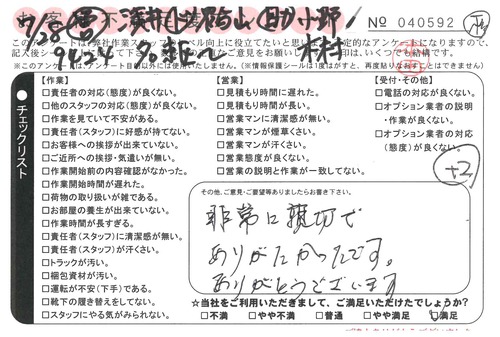 No 040592
このアンケートは弊社作業スタッフのレベル向上に役立てたいと思います。否定的なアンケートになりますので、
※このアンケートは、アンケート目的以外には使用いたしません。（※情報保護シールは1度はがすと、再度貼りなおすことはできません）
チェックリスト
【作業】
□責任者の対応（態度）が良くない。
□他のスタッフの対応（態度）が良くない。
□作業を見ていて不安がある。
□責任者（スタッフ）に好感が持てない。
□お客様への挨拶が出来ていない。
□ご近所への挨拶・気遣いが無い。
□作業開始前の内容確認がなかった。
□作業開始時間が遅れた。
□荷物の取り扱いが雑である。
□お部屋の養生が出来ていない。
□作業時間が長すぎる。
□責任者（スタッフ）に清潔感が無い。
□責任者（スタッフ）が汗くさい。
□トラックが汚い。
□梱包資材が汚い。
□運転が不安（下手）である。
□靴下の履き替えをしてない。
□スタッフにやる気がみられない。
【営業】
□見積もり時間に遅れた。
□見積もり時間が長い。
□営業マンに清潔感が無い。
□営業マンが煙草くさい。
□営業マンが汗くさい。
□営業態度が良くない。
□営業の説明と作業が一致してない。
【受付・その他】
□電話の対応が良くない。
□オプション業者の説明
・作業が良くない。
□オプション業者の対応
（態度）が良くない。
+2
その他、ご意見・ご要望等ありましたらお書き下さい。
非常に親切で
ありがたかったです。
ありがとうございます
☆当社をご利用いただきまして、ご満足いただけたでしょうか？
□不満 □やや不満 □普通 □やや満足 □満足